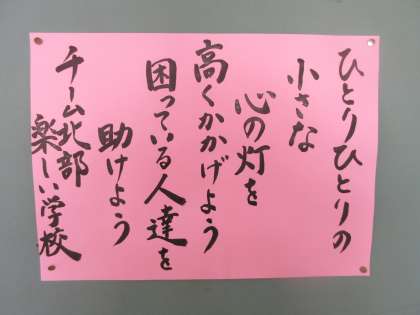 ひとりひとりの
小さな
心の灯を
高くかかげよう
困っている人達を
助けよう
チーム北部
楽しい学校